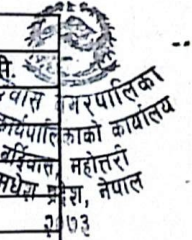 नगरपालिका
कार्यपालिकाको कार्यालय
बर्दिवास, महोत्तरी
मधेश प्रदेश, नेपाल
२०७३